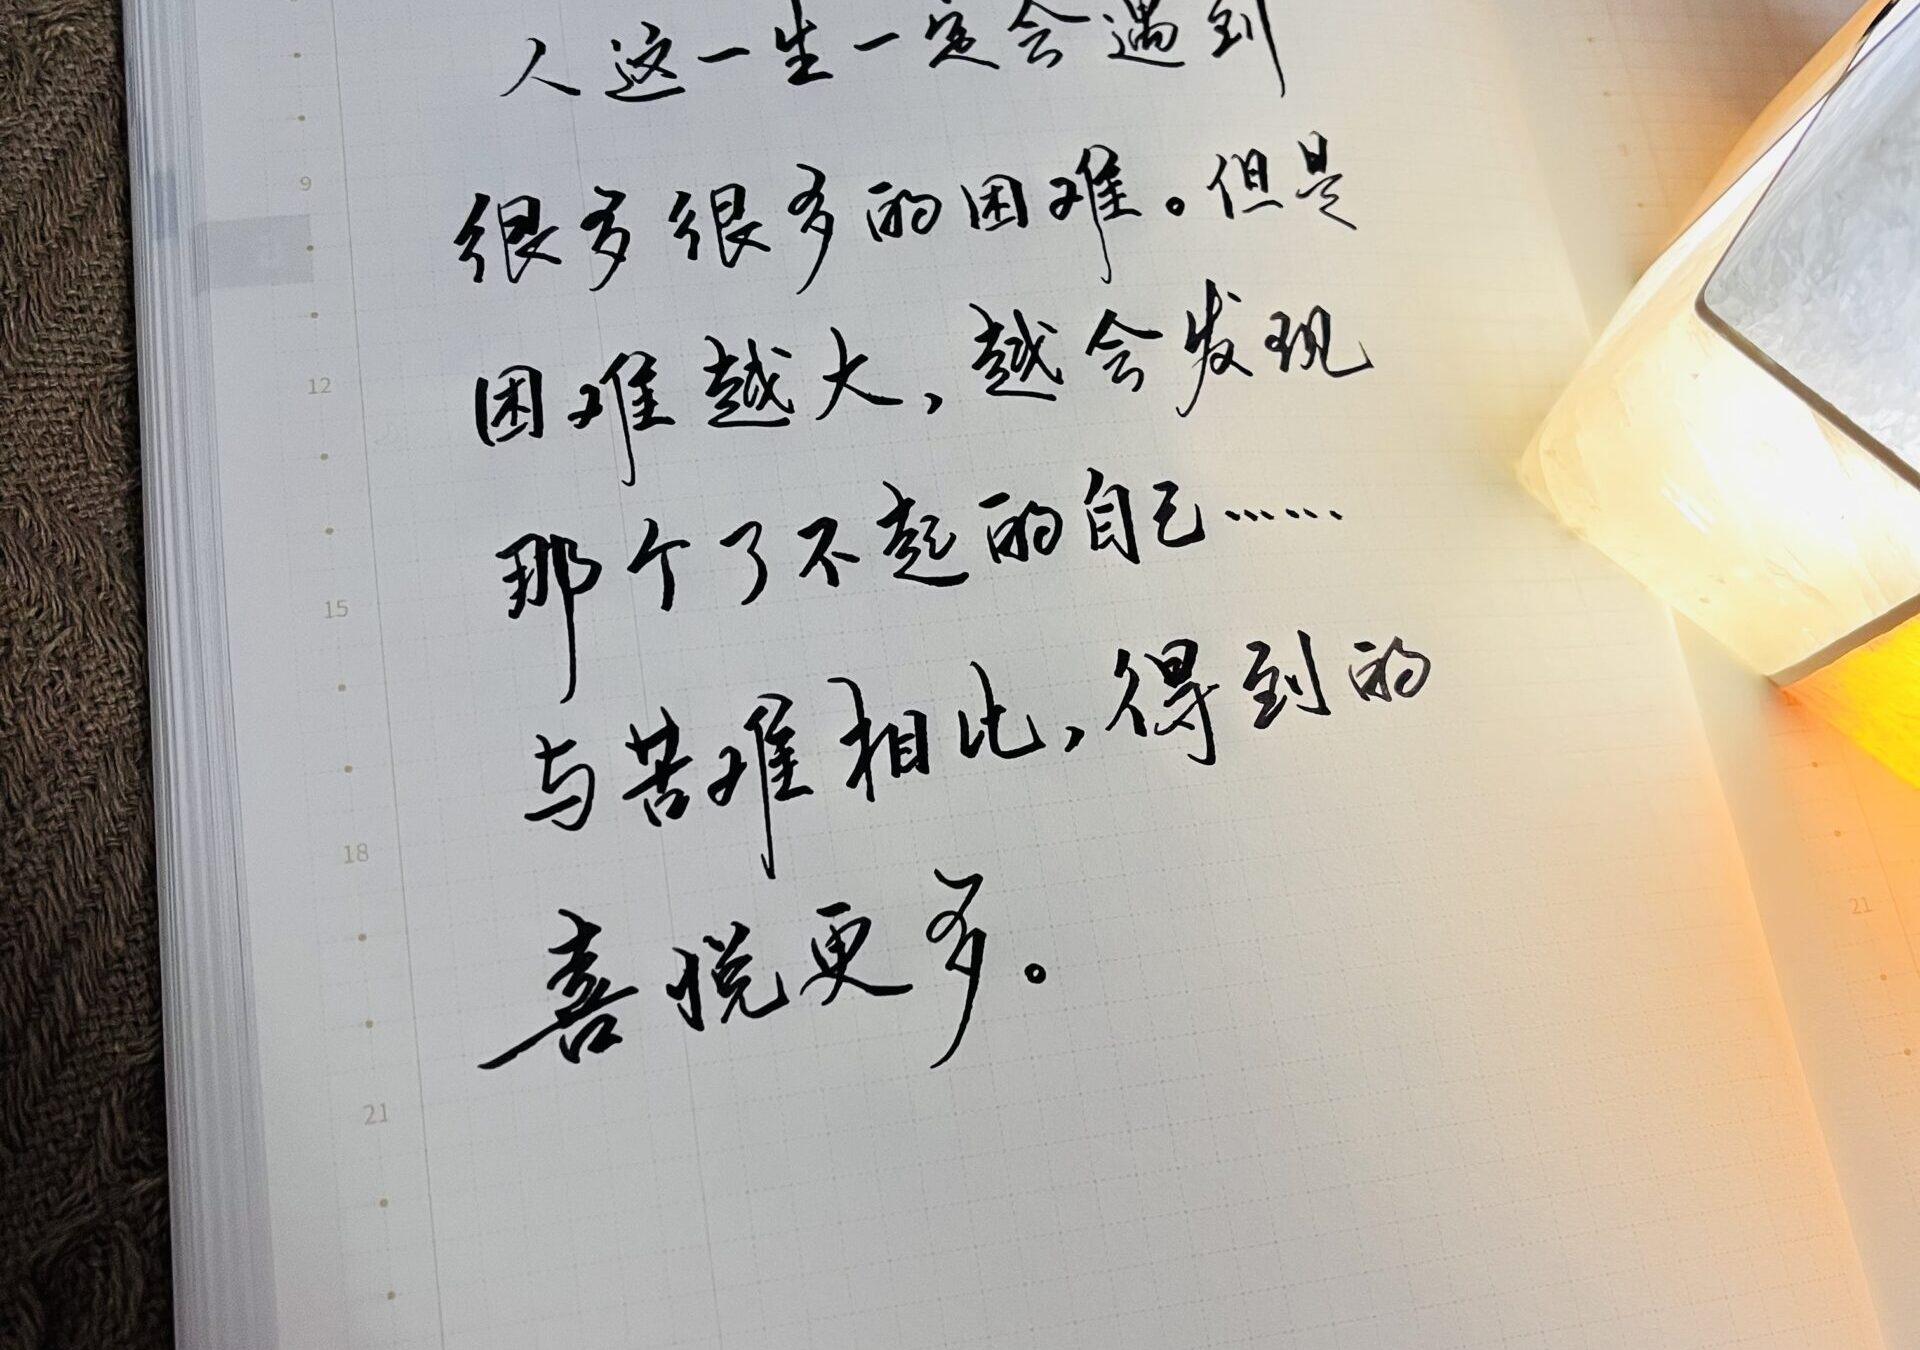 人这一生一定会遇到
很多很多的困难。但是
困难越大，越会发现
那个了不起的自己……
与苦难相比，得到的
喜悦更多。
9
12
15
18
21
21